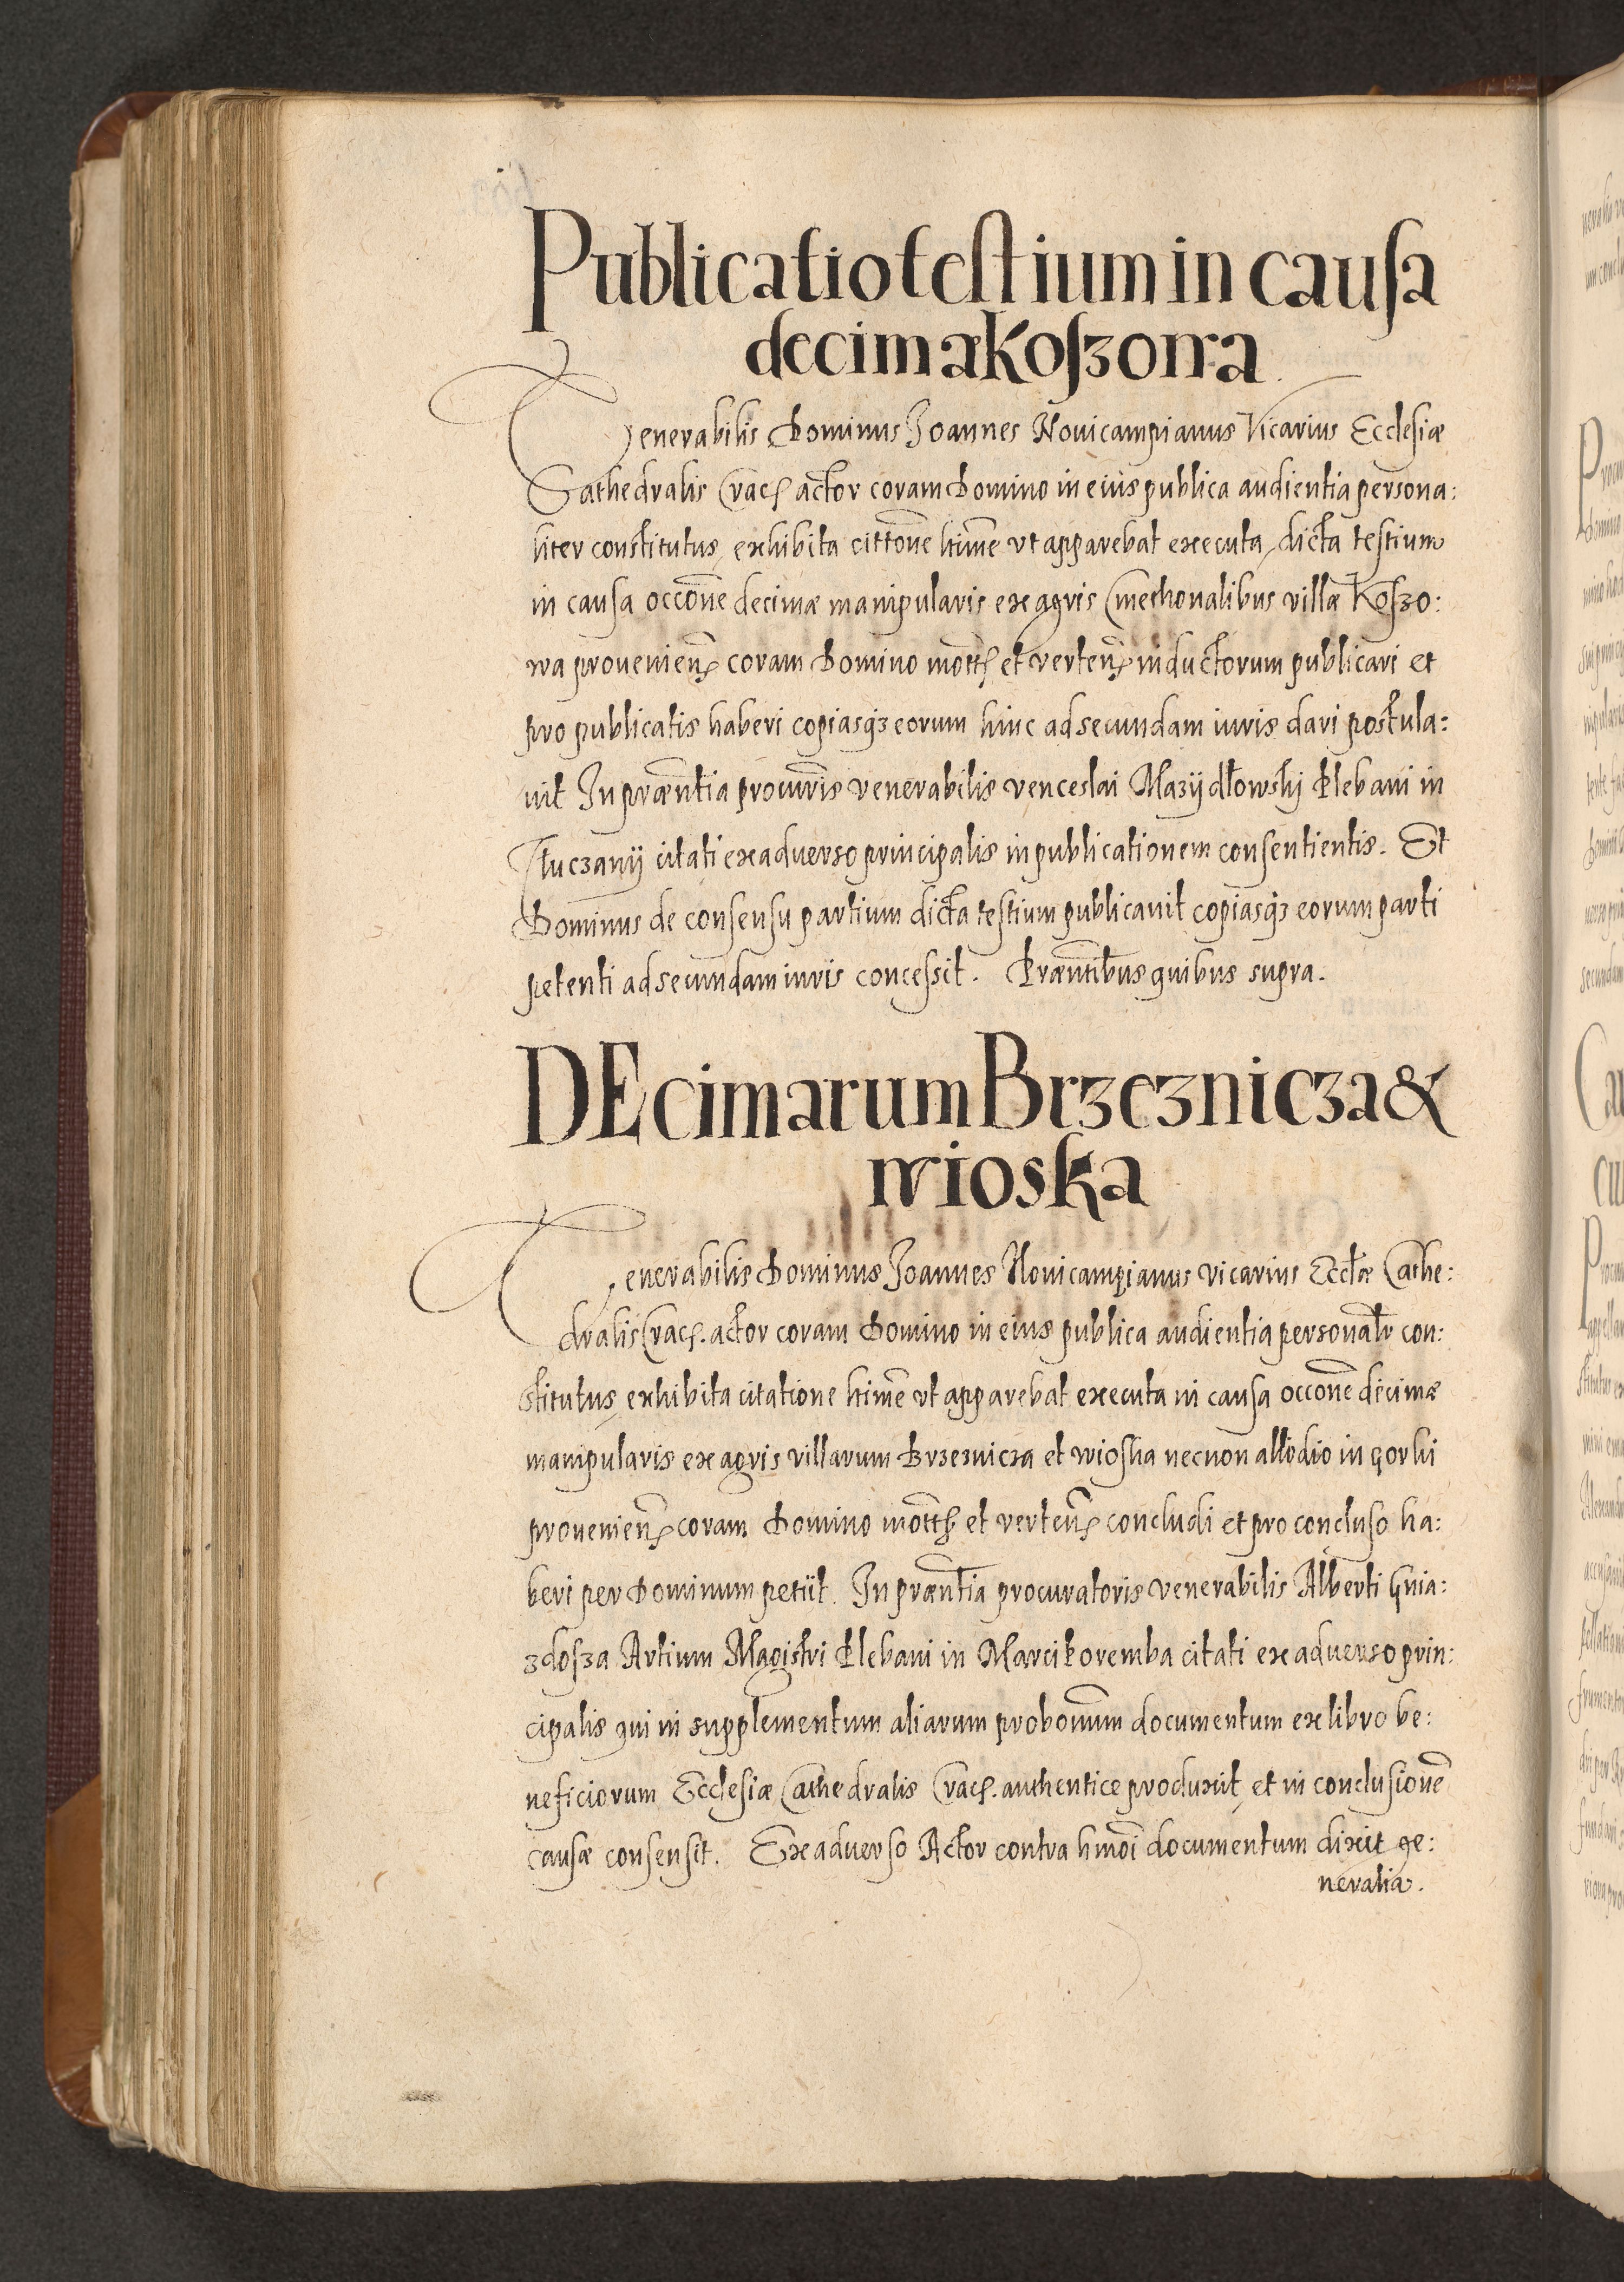 Publicatio testium in causa
decimæ Koſzowa
Venerabilis Dominus Joannes Nouicampianus Vicarius Ecclesiæ
Cathedralis Crac. actor coram Domino in eius publica audientia persona:
liter constitutus, exhibita cittōne ltime vt apparebat executa, dicta testium
in causa occōne decimæ manipularis ex agris Cmethonalibus villæ Koſzo:
wa prouenien. coram Domino mott. et verten. inductorum publicari et
pro publicatis haberi copiasq3 eorum hinc ad secundam iuris dari postula:
uit In præntia procuris venerabilis venceslai Mazÿdłowskj Plebani in
Tłuczanÿ citati ex aduerso principalis in publicationem consentientis. Et
Dominus de consensu partium dicta testium publicauit copiasq3 eorum parti
petenti ad secundam iuris concessit. Præntibus quibus supra.
DEcimarum Brzeznicza &
wioska
Venerabilis Dominus Joannes Nouicampianus vicarius Ecctæ Cathe:
dralis Crac. actor coram Domino in eius publica audientia personatr con:
stitutus, exhibita citatione ltime vt apparebat executa in causa occōne decimæ
manipularis ex agris villarum Brzeznicza et wioska necnon allodio in gorki
prouenien. coram Domino mott. et verten. concludi et pro concluso ha:
beri per Dominum petiit. In præntia procuratoris venerabilis Alberti Gnia:
zdosza Artium Magistri Plebani in Marciporemba citati ex aduerso prin:
cipalis qui in supplementum aliarum probonum documentum ex libro be:
neficiorum Ecclesiæ Cathedralis Crac. authentice produxit, et in conclusionē
causæ consensit. Ex aduerso Actor contra hmōi documentum dixit ge:
neralia.